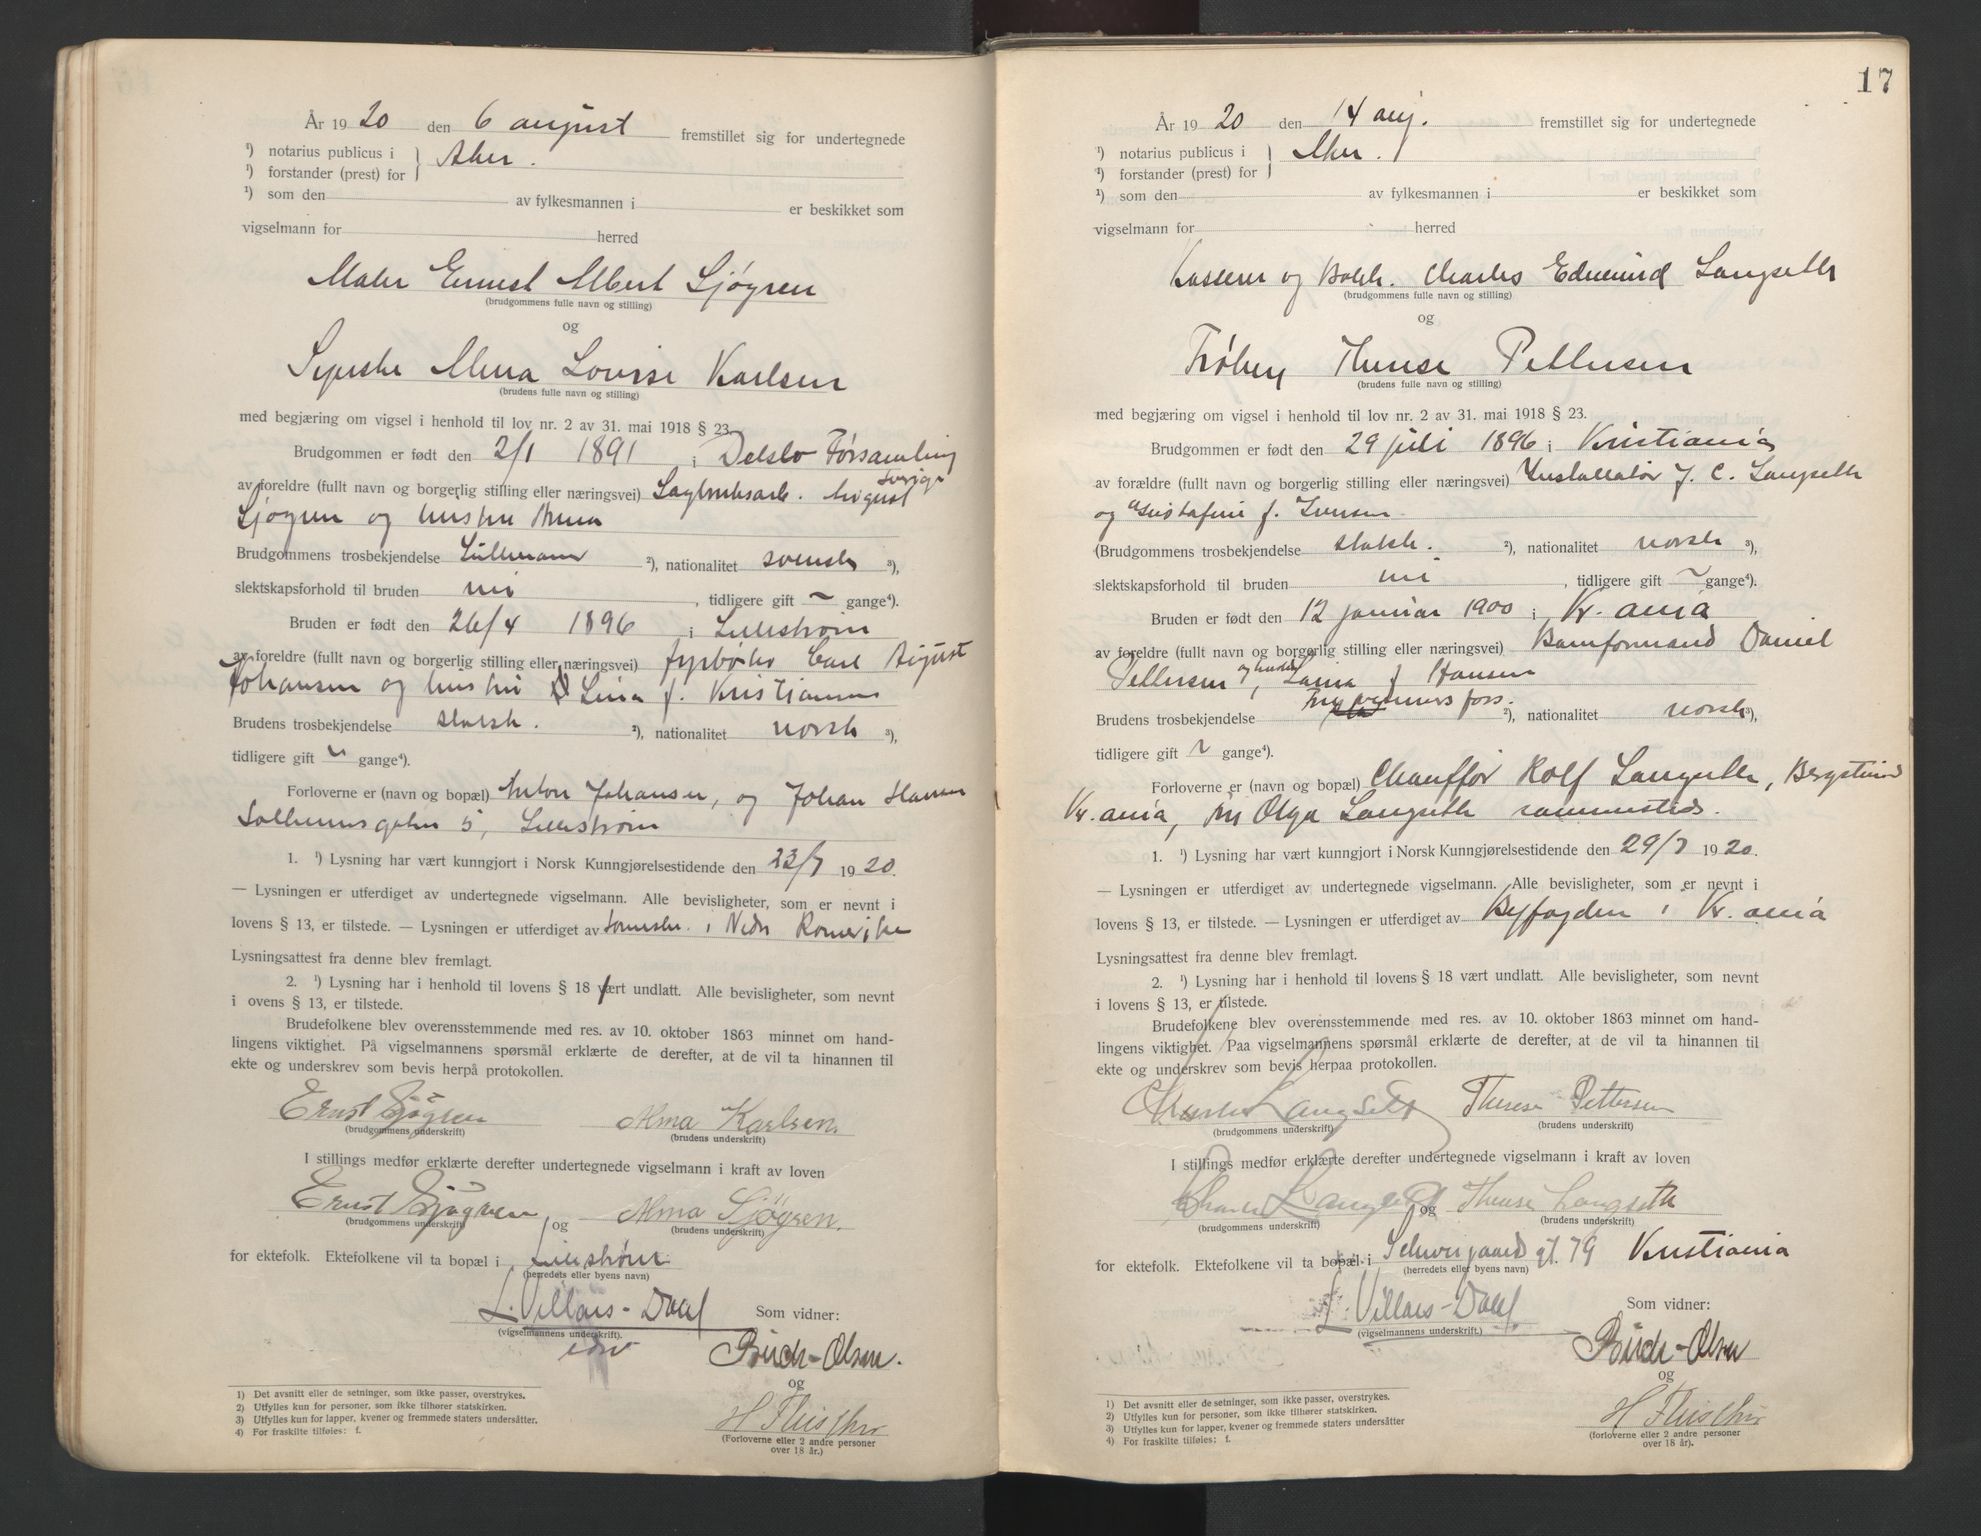 År 1920 den 6 august fremstillet sig for undertegnede
¹) notarius publicus i } Aker.
¹) forstander (prest) for
¹) som den av fylkesmannen i er beskikket som
vigselmann for herred
Maler Ernest Albert Sjøgren
(brudgommens fulle navn og stilling)
og
Syerske Alma Lovise Karlsen
(brudens fulle navn og stilling)
med begjæring om vigsel i henhold til lov nr. 2 av 31. mai 1918 § 23.
Brudgommen er født den 2/1 1891 i Delsbo Førsamling
Sverige
av foreldre (fullt navn og borgerlig stilling eller næringsvei) Sagbruksarb. August
Sjøgren og hustru Anna
Brudgommens trosbekjendelse ²), nationalitet svensk ³),
slektskapsforhold til bruden nei, tidligere gift ~ gange⁴).
Bruden er født den 26/4 1896 i Lillestrøm
av foreldre (fullt navn og borgerlig stilling eller næringsvei) fyrbøter Carl August
Johansen og hustru Lina f. Kristiansen
Brudens trosbekjendelse statsk. ²), nationalitet norsk ³),
tidligere gift ~ gange⁴).
Forloverne er (navn og bopæl) Anton Johansen, og Johan Hansen
5, Lillestrøm
1. ¹) Lysning har vært kunngjort i Norsk Kunngjørelsestidende den 23/7 1920.
— Lysningen er utferdiget av undertegnede vigselmann. Alle bevisligheter, som er nevnt i
lovens § 13, er tilstede. — Lysningen er utferdiget av i Nedr Romerike
Lysningsattest fra denne blev fremlagt.
2. ¹) Lysning har i henhold til lovens § 18 vært undlatt. Alle bevisligheter, som nevnt
i ovens § 13, er tilstede.
Brudefolkene blev overensstemmende med res. av 10. oktober 1863 minnet om hand-
lingens viktighet. På vigselmannens spørsmål erklærte de derefter, at de vil ta hinannen til
ekte og underskrev som bevis herpå protokollen.
Ernst Sjögren Alma Karlsen.
(brudgommens underskrift) (brudens underskrift)
I stillings medfør erklærte derefter undertegnede vigselmann i kraft av loven
Ernst Sjögren og Alma Sjögren.
(brudgommens underskrift) (brudens underskrift)
for ektefolk. Ektefolkene vil ta bopæl i Lillestrøm
(herredets eller byens navn)
L. Villars-Dahl Som vidner:
(vigselmannens underskrift).
Buch-Olsen.
og
H
(Forloverne eller 2 andre personer
over 18 år.)
1) Det avsnitt eller de setninger, som ikke passer, overstrykes.
2) Utfylles kun for personer, som ikke tilhører statskirken.
3) Utfylles kun for lapper, kvener og fremmede staters undersåtter.
4) For fraskilte tilføies: f.
17
År 1920 den 14 aug. fremstillet sig for undertegnede
¹) notarius publicus i } Aker.
¹) forstander (prest) for
¹) som den av fylkesmannen i er beskikket som
vigselmann for herred
Kasserer og Bokh. Charles Edmund Langseth
(brudgommens fulle navn og stilling)
og
Frøken Therese Pettersen
(brudens fulle navn og stilling)
med begjæring om vigsel i henhold til lov nr. 2 av 31. mai 1918 § 23.
Brudgommen er født den 29 juli 1896 i Kristiania
av forældre (fullt navn og borgerlig stilling eller næringsvei) Installatør J. C. Langseth
og Gustafine f. Iversen
(Brudgommens trosbekjendelse statsk. ²), nationalitet norsk ³),
slektskapsforhold til bruden nei, tidligere gift ~ gange⁴).
Bruden er født den 12 januar 1900 i Kr.ania
av foreldre (fullt navn og borgerlig stilling eller næringsvei) Banformand Daniel
Pettersen og hustru, f Hansen
Brudens trosbekjendelse ²), nationalitet norsk ³),
tidligere gift ~ gange⁴).
Forloverne er (navn og bopæl) Chauffør Rolf Langseth,
Kr.ania, frk Olga Langseth sammesteds.
1. ¹) Lysning har vært kunngjort i Norsk Kunngjørelsestidende den 29/7 1920.
— Lysningen er utferdiget av undertegnede vigselmann. Alle bevisligheter, som er nevnt i
lovens § 13, er tilstede. — Lysningen er utferdiget av Byfogden i Kr.ania
Lysningsattest fra denne blev fremlagt.
2. ¹) Lysning har i henhold til lovens § 18 vært undlatt. Alle bevisligheter, som nevnt
i lovens § 13, er tilstede.
Brudefolkene blev overensstemmende med res. av 10. oktober 1863 minnet om hand-
lingens viktighet. Paa vigselmannens spørsmål erklærte de derefter, at de vil ta hinannen til
ekte og underskrev som bevis herpaa protokollen.
Charles Langseth Therese Pettersen
(brudgommens underskrift) (brudens underskrift)
I stillings medfør erklærte derefter undertegnede vigselmann i kraft av loven
Charles Langseth og Therese Langseth
(brudgommens underskrift) (brudens underskrift)
for ektefolk. Ektefolkene vil ta bopæl i Schweigaards gt. 79 Kristiania
(herredets eller byens navn)
L. Villars-Dahl. Som vidner:
(vigselmannens underskrift.)
Buch-Olsen
og
H
(forloverne eller 2 andre personer
over 18 år).
1) Det avsnitt eller de setninger, som ikke passer, overstrykes.
2) Utfylles kun for personer, som ikke tilhører statskirken.
3) Utfylles kun for lapper, kvener og fremmede staters undersåtter
4) For fraskilte tilføies: f.